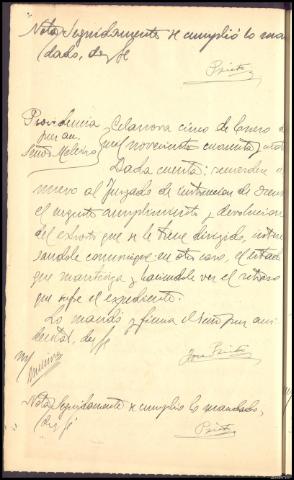 Nota Seguidamente se cumplió lo man
dado, doy fe
Prieto
Providencia Celanova cinco de Enero de
mil novecientos cuarenta y ocho
Señor Meleiro
Dada cuenta: recuérdese de
nuevo al Juzgado de instrucción de Orense
el urgente cumplimiento y devolución
del exhorto que se le tiene dirigido, intere
sándole comunique en otro caso, el estado
que mantenga y haciéndole ver el retraso
que sufre el expediente.
Lo mandó y firma el Señor Juez acci
dental, doy fe
José Prieto
Nota Seguidamente se cumplió lo mandado,
doy fe
Prieto